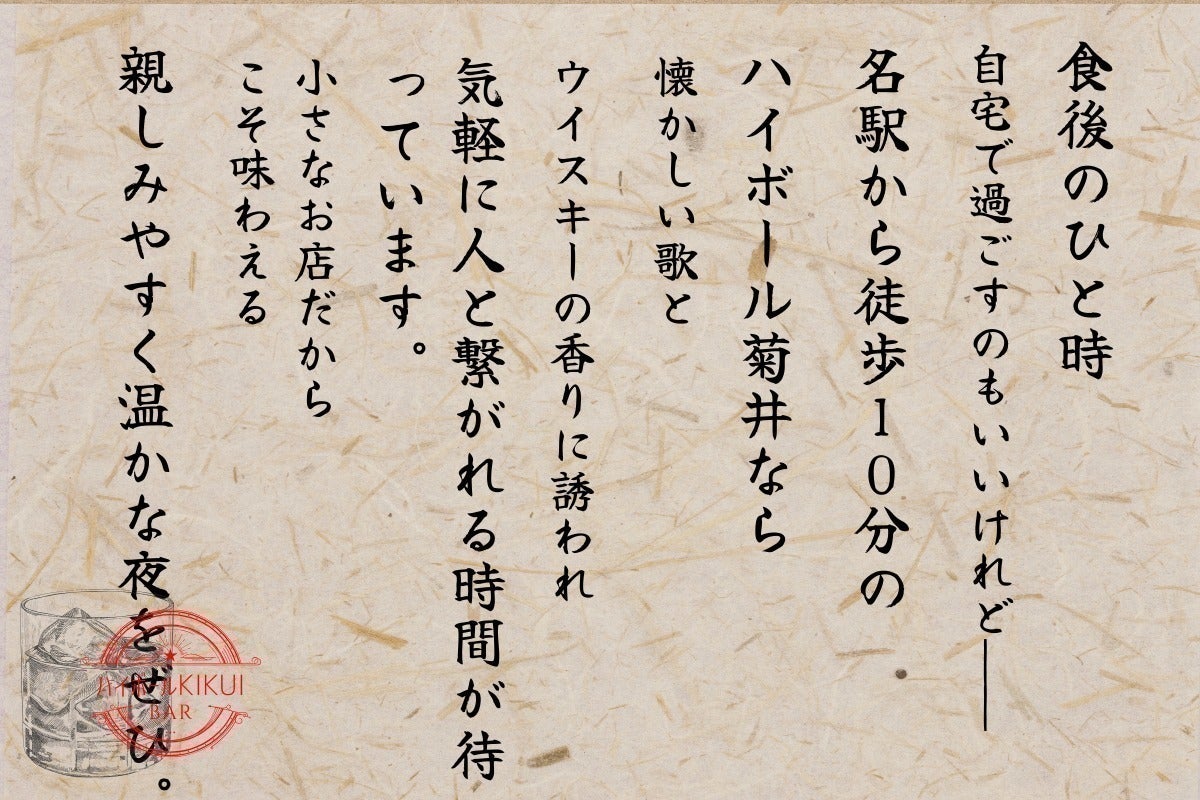 食後のひと時
自宅で過ごすのもいいけれど──
名駅から徒歩10分の
ハイボール菊井なら
懐かしい歌と
ウイスキーの香りに誘われ
気軽に人と繋がれる時間が待
っています。
小さなお店だから
こそ味わえる
親しみやすく温かな夜をぜひ。
ハイボールKIKUI
BAR